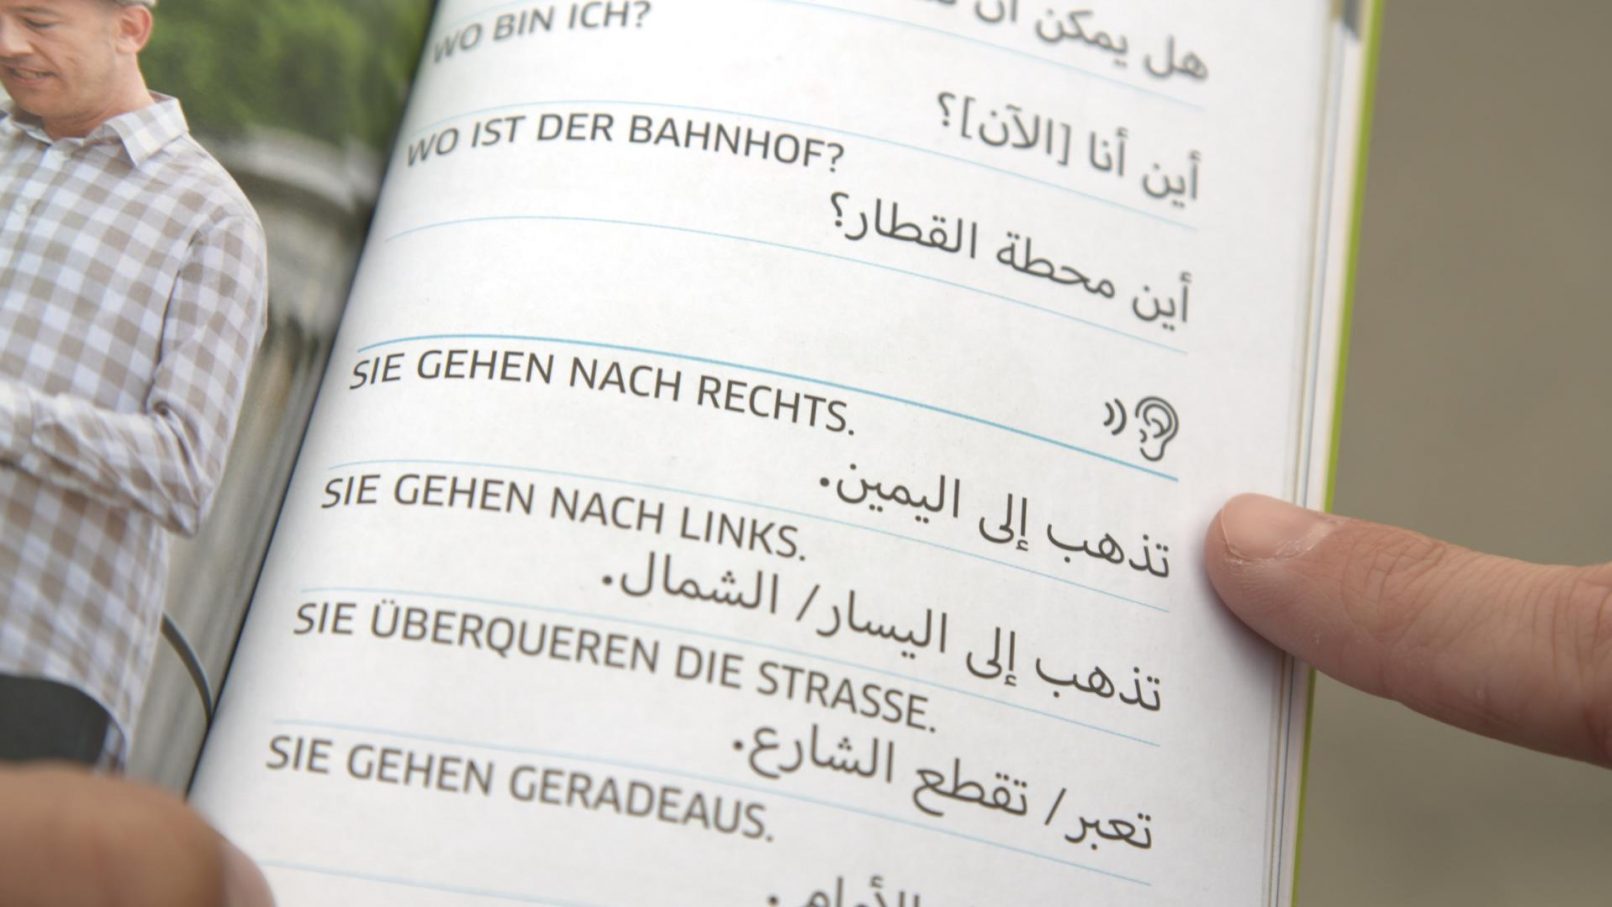 هل يمكن أن
WO BIN ICH?
أين أنا [الآن]؟
WO IST DER BAHNHOF?
أين محطة القطار؟
SIE GEHEN NACH RECHTS.
تذهب إلى اليمين.
SIE GEHEN NACH LINKS.
تذهب إلى اليسار/ الشمال.
SIE ÜBERQUEREN DIE STRASSE.
تعبر/ تقطع الشارع.
SIE GEHEN GERADEAUS.
الأمام.